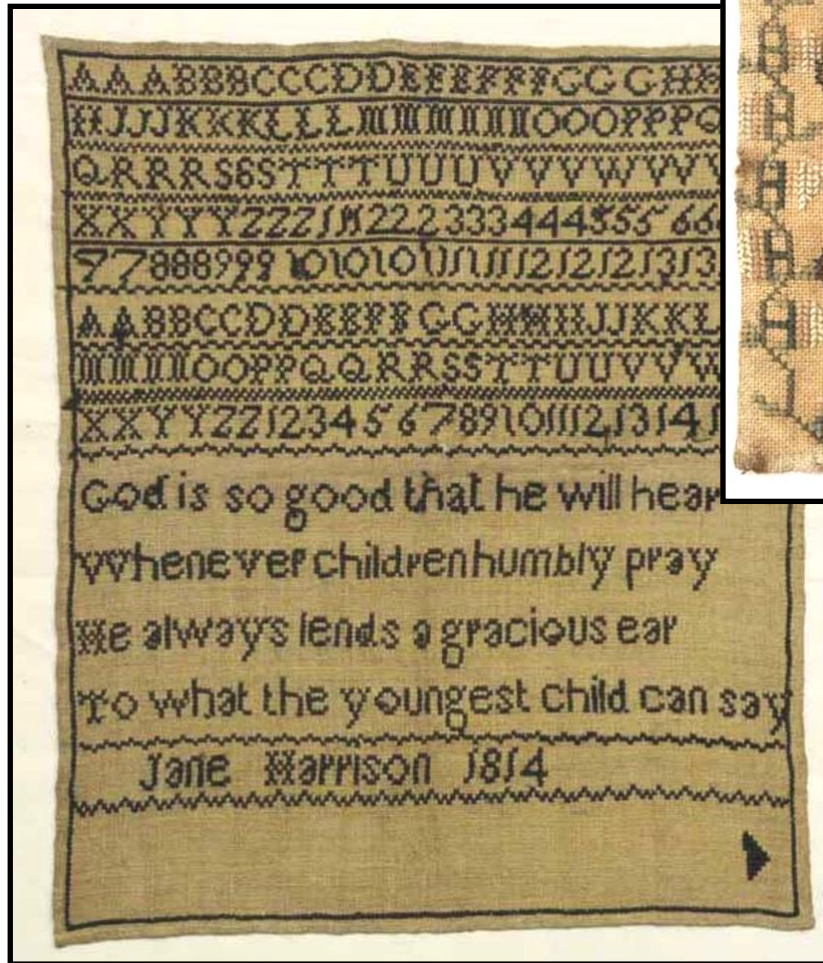 AAABBBCCCDDEEEFFFGGGHH
HJJJKKKLLLMMMNNNOOOPPPQ
QRRRSSSTTTUUUVVVWWW
XXYYYZZZ11122233344455566
778889991010101111111212121313
AABBCCDDEEFFGGHHHJJKKL
MMNNOOPPQQRRSSTTUUVVW
XXYYZZ1234567891011121314
God is so good that he will hear
Whenever children humbly pray
He always lends a gracious ear
To what the youngest child can say
Jane Harrison 1814